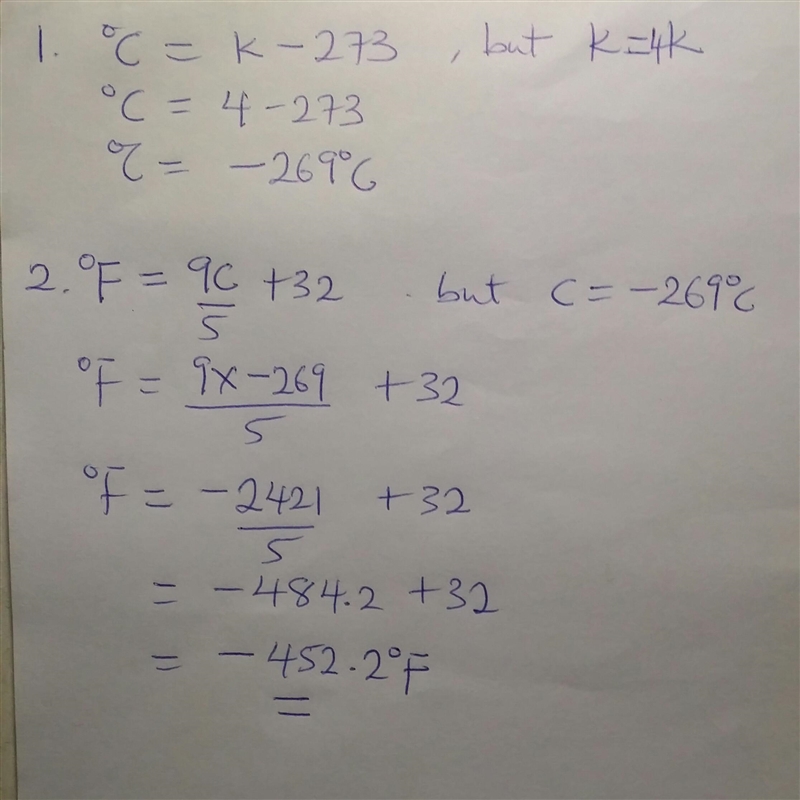 1. °C = K - 273 , but K = 4K
°C = 4 - 273
°C = - 269°C
2. °F = 9C/5 + 32 . but C = - 269°C
°F = 9x - 269/5 + 32
°F = - 2421/5 + 32
= - 484.2 + 32
= - 452.2°F